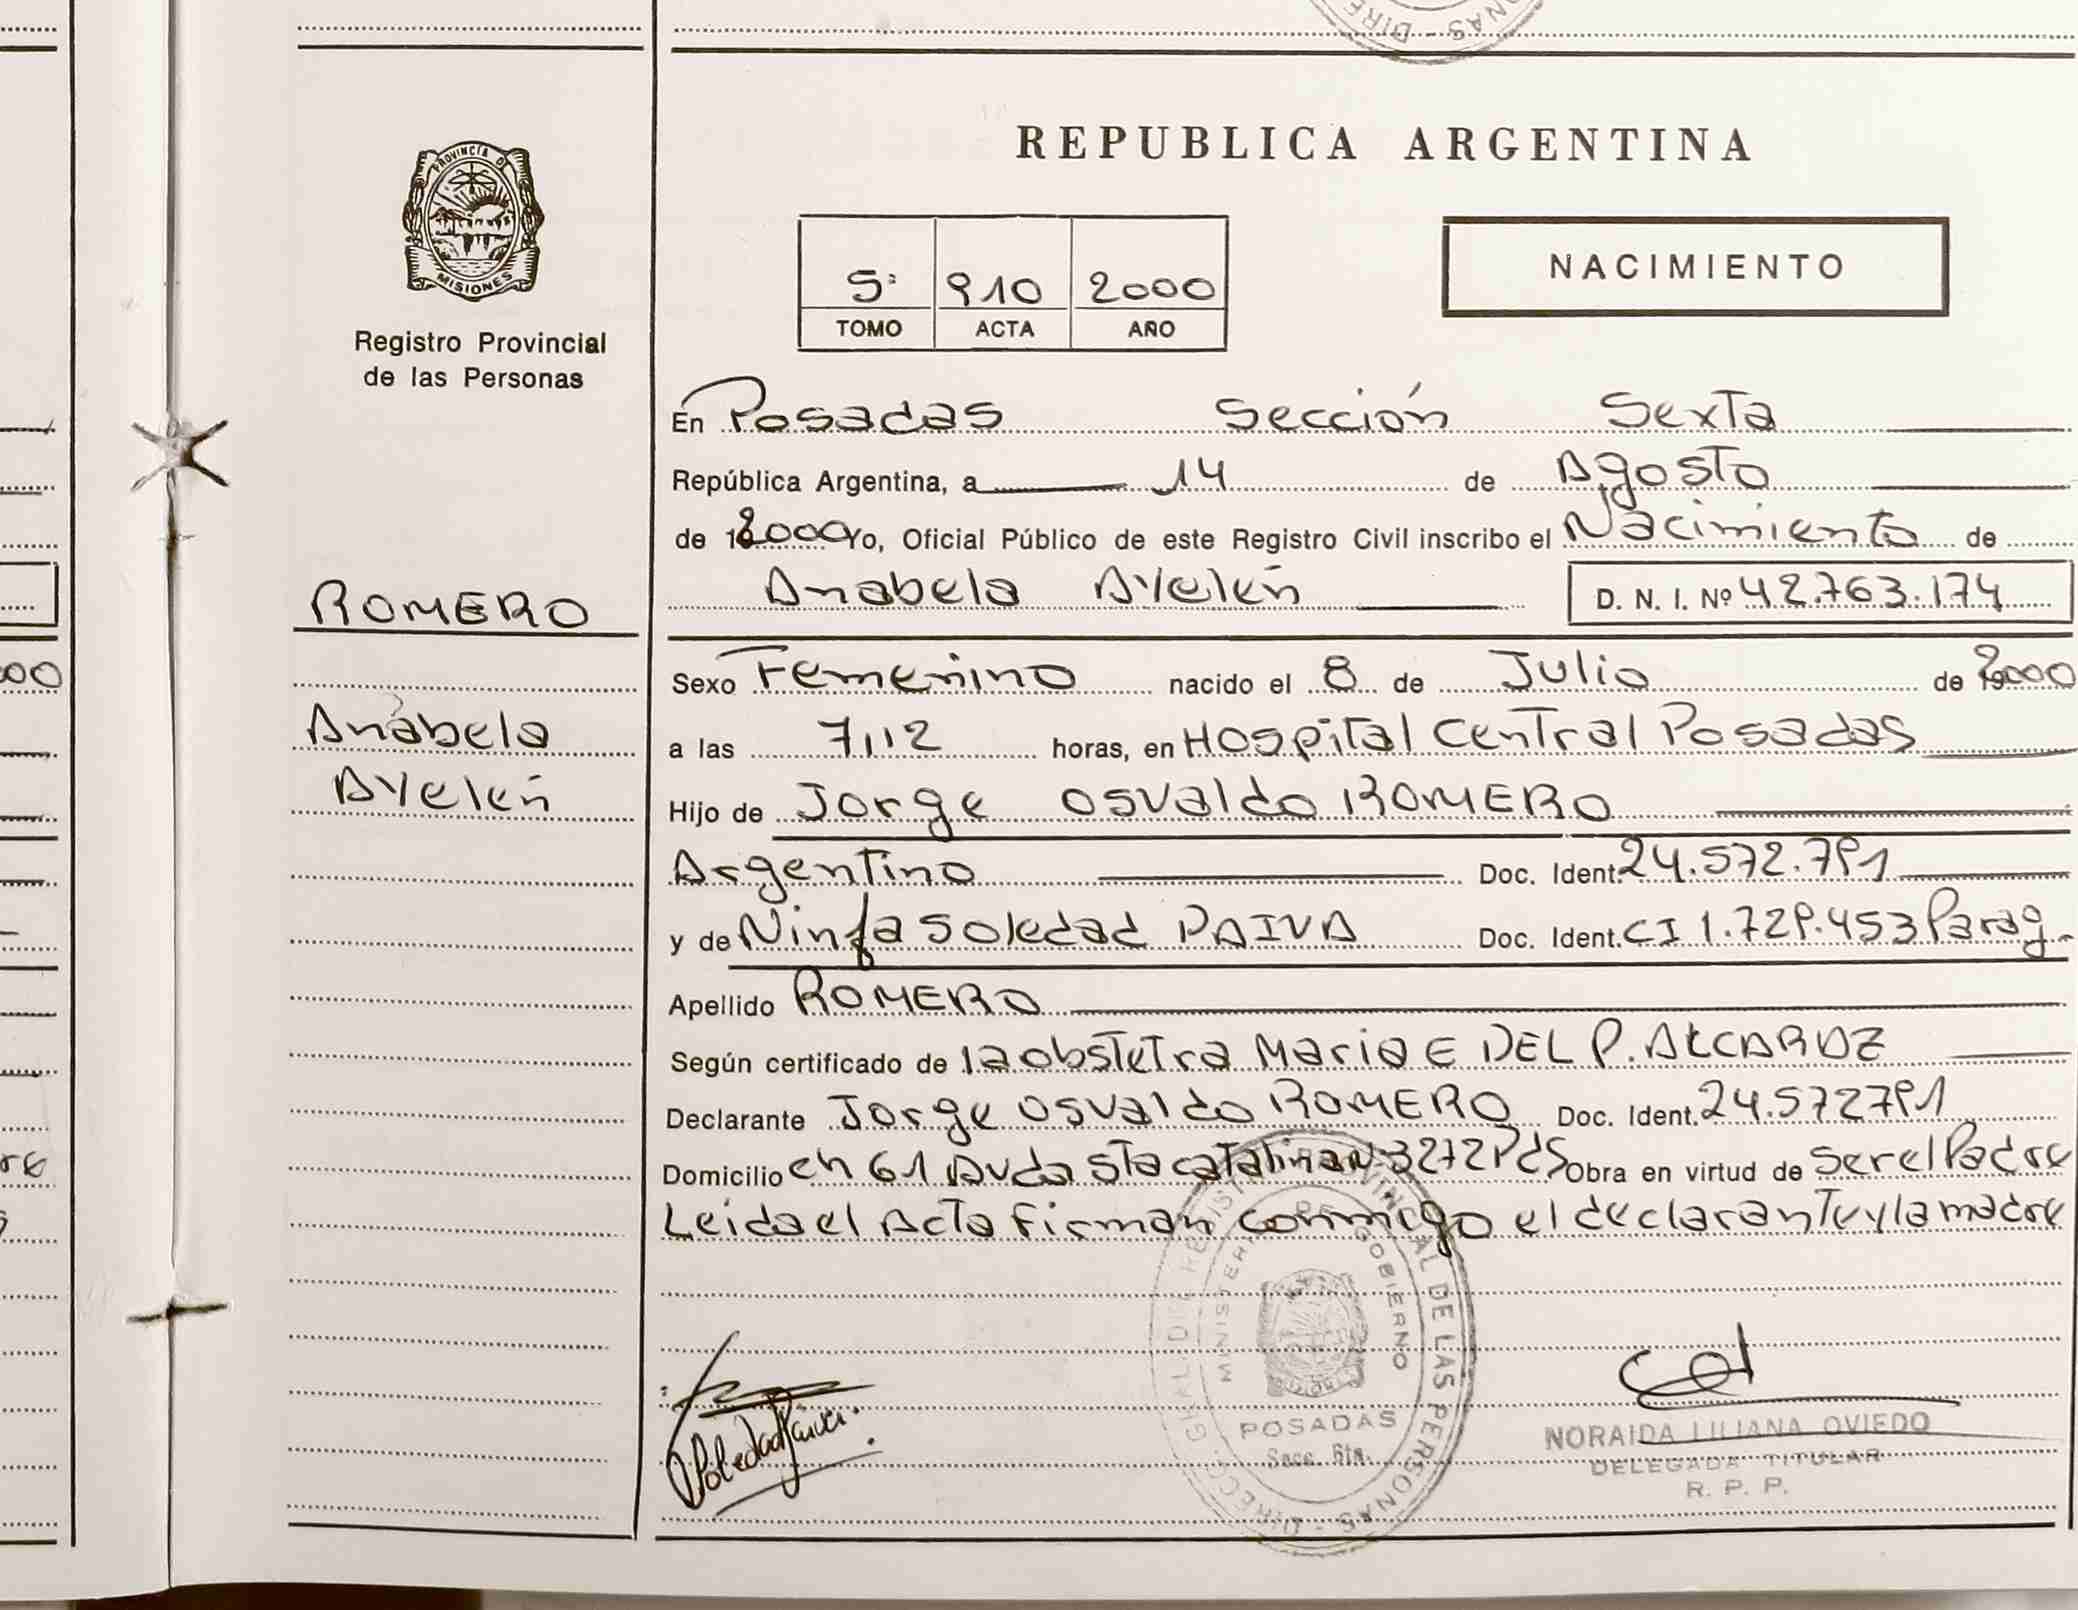 REPUBLICA ARGENTINA
PROVINCIA DE
MISIONES
Registro Provincial
de las Personas
5º 910 2000
TOMO ACTA AÑO
NACIMIENTO
En Posadas Sección Sexta
República Argentina, a 14 de Agosto
de 2000 Yo, Oficial Público de este Registro Civil inscribo el Nacimiento de
Anabela Ayelén D. N. I. Nº 42.763.174
ROMERO
Anabela
Ayelén
Sexo Femenino nacido el 8 de Julio de 2000
a las 7,12 horas, en Hospital Central Posadas
Hijo de Jorge Osvaldo ROMERO
Argentino Doc. Ident. 24.572.791
y de Ninfa Soledad PAIVA Doc. Ident. CI 1.729.453 Parag.
Apellido ROMERO
Según certificado de la obstetra Maria E DEL P. ALCARAZ
Declarante Jorge Osvaldo ROMERO Doc. Ident. 24.572791
Domicilio Ch 61 Avda Sta Catalina Nº 3272 Pdas Obra en virtud de ser el Padre
Leida el Acta firman conmigo el declarante y la madre
DIRECC. GRAL. DEL REGISTRO PROVINCIAL DE LAS PERSONAS
MINISTERIO DE GOBIERNO
POSADAS
Secc. 6ta.
Soledad Paiva
NORAIDA LILIANA OVIEDO
DELEGADA TITULAR
R. P. P.